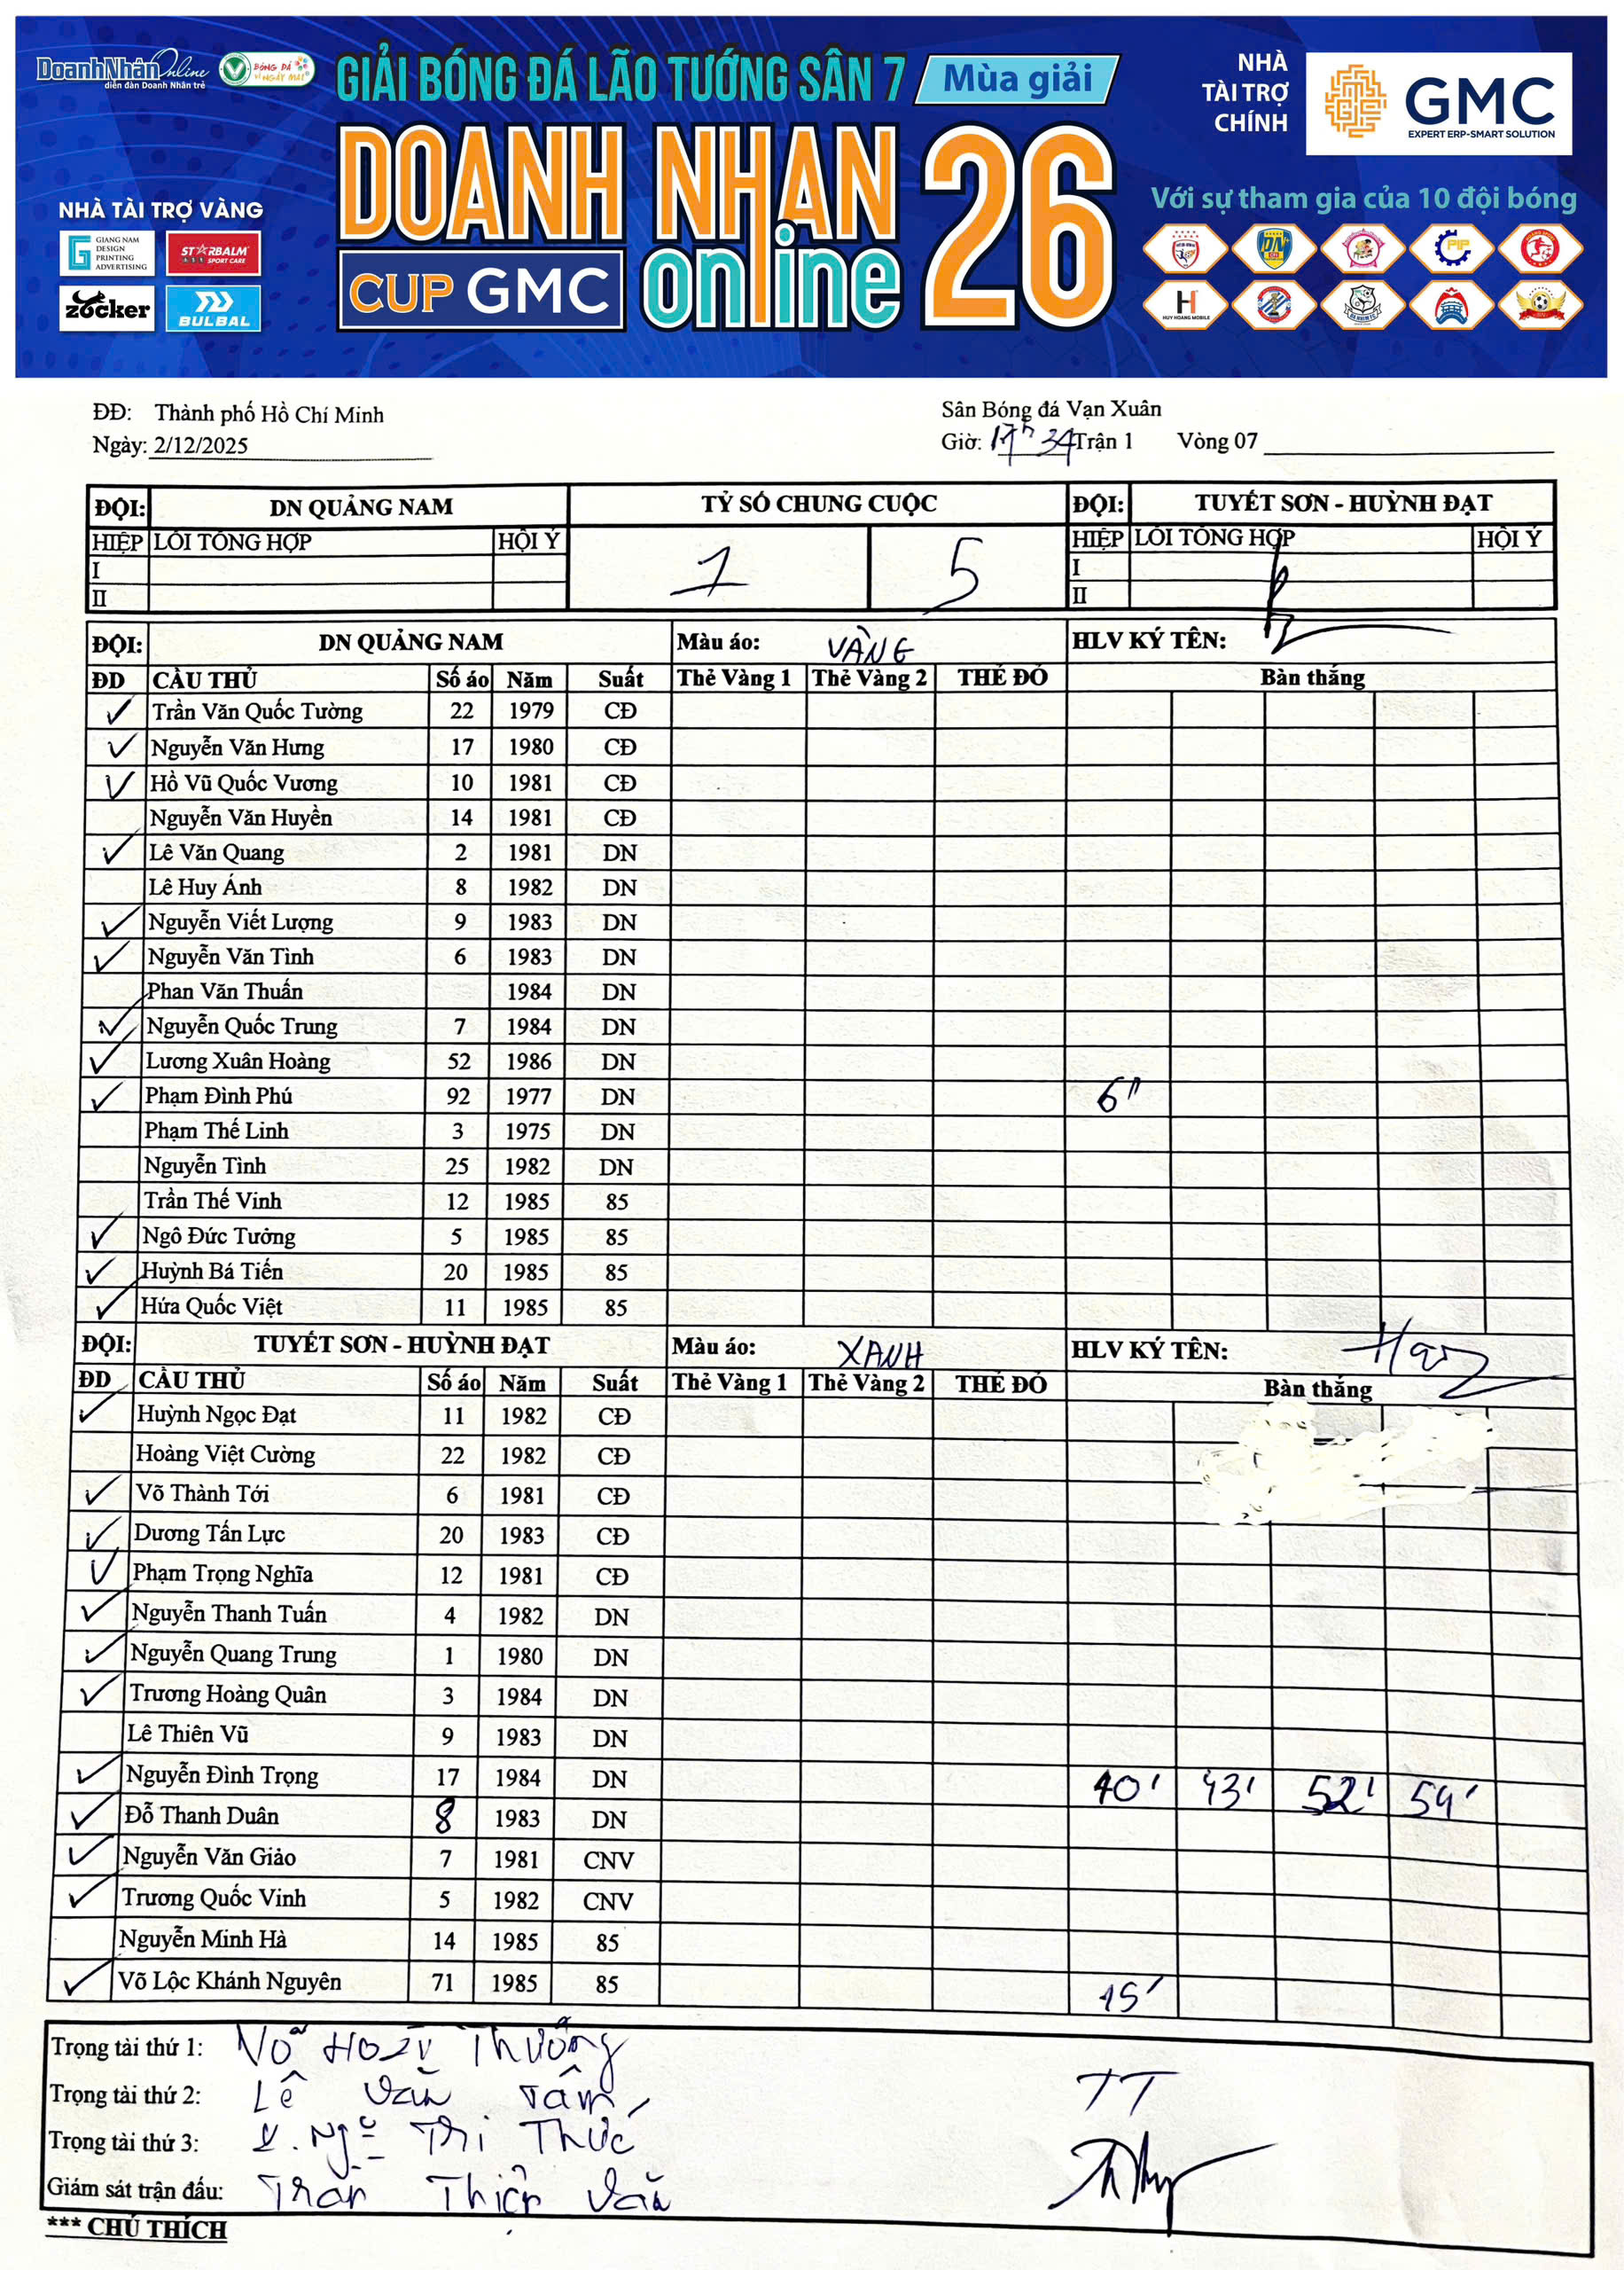 DoanhNhânOnline
diễn đàn Doanh Nhân trẻ
BÓNG ĐÁ
VÌ NGÀY MAI
GIẢI BÓNG ĐÁ LÃO TƯỚNG SÂN 7 Mùa giải
DOANH NHAN 26
CUP GMC online
NHÀ TÀI TRỢ VÀNG
GIANG NAM
DESIGN
PRINTING
ADVERTISING
STARBALM
SPORT CARE
zocker
BULBAL
NHÀ
TÀI TRỢ
CHÍNH
GMC
EXPERT ERP-SMART SOLUTION
Với sự tham gia của 10 đội bóng
DN
PIP
H
HUY HOANG MOBILE
ĐĐ: Thành phố Hồ Chí Minh Sân Bóng đá Vạn Xuân
Ngày: 2/12/2025 Giờ: 17h 34 Trận 1 Vòng 07
ĐỘI: DN QUẢNG NAM TỶ SỐ CHUNG CUỘC ĐỘI: TUYẾT SƠN - HUỲNH ĐẠT
HIỆP LỖI TỔNG HỢP HỘI Ý 1 5 HIỆP LỖI TỔNG HỢP HỘI Ý
I I
II II
ĐỘI: DN QUẢNG NAM Màu áo: VÀNG HLV KÝ TÊN:
ĐD CẦU THỦ Số áo Năm Suất Thẻ Vàng 1 Thẻ Vàng 2 THẺ ĐỎ Bàn thắng
✓ Trần Văn Quốc Tường 22 1979 CĐ
✓ Nguyễn Văn Hưng 17 1980 CĐ
✓ Hồ Vũ Quốc Vương 10 1981 CĐ
Nguyễn Văn Huyền 14 1981 CĐ
✓ Lê Văn Quang 2 1981 DN
Lê Huy Ánh 8 1982 DN
✓ Nguyễn Viết Lượng 9 1983 DN
✓ Nguyễn Văn Tình 6 1983 DN
Phan Văn Thuấn 1984 DN
✓ Nguyễn Quốc Trung 7 1984 DN
✓ Lương Xuân Hoàng 52 1986 DN
✓ Phạm Đình Phú 92 1977 DN 6"
Phạm Thế Linh 3 1975 DN
Nguyễn Tình 25 1982 DN
Trần Thế Vinh 12 1985 85
✓ Ngô Đức Tưởng 5 1985 85
✓ Huỳnh Bá Tiến 20 1985 85
✓ Hứa Quốc Việt 11 1985 85
ĐỘI: TUYẾT SƠN - HUỲNH ĐẠT Màu áo: XANH HLV KÝ TÊN:
ĐD CẦU THỦ Số áo Năm Suất Thẻ Vàng 1 Thẻ Vàng 2 THẺ ĐỎ Bàn thắng
✓ Huỳnh Ngọc Đạt 11 1982 CĐ
Hoàng Việt Cường 22 1982 CĐ
✓ Võ Thành Tới 6 1981 CĐ
✓ Dương Tấn Lực 20 1983 CĐ
✓ Phạm Trọng Nghĩa 12 1981 CĐ
✓ Nguyễn Thanh Tuấn 4 1982 DN
✓ Nguyễn Quang Trung 1 1980 DN
✓ Trương Hoàng Quân 3 1984 DN
Lê Thiên Vũ 9 1983 DN
✓ Nguyễn Đình Trọng 17 1984 DN 40' 43' 52' 54'
✓ Đỗ Thanh Duân 8 1983 DN
✓ Nguyễn Văn Giảo 7 1981 CNV
✓ Trương Quốc Vinh 5 1982 CNV
Nguyễn Minh Hà 14 1985 85
✓ Võ Lộc Khánh Nguyên 71 1985 85 15'
Trọng tài thứ 1: Võ Hoài Thưởng
Trọng tài thứ 2: Lê Văn Tâm TT
Trọng tài thứ 3: Tri Thức
Giám sát trận đấu: Trần Thiện Văn
*** CHÚ THÍCH